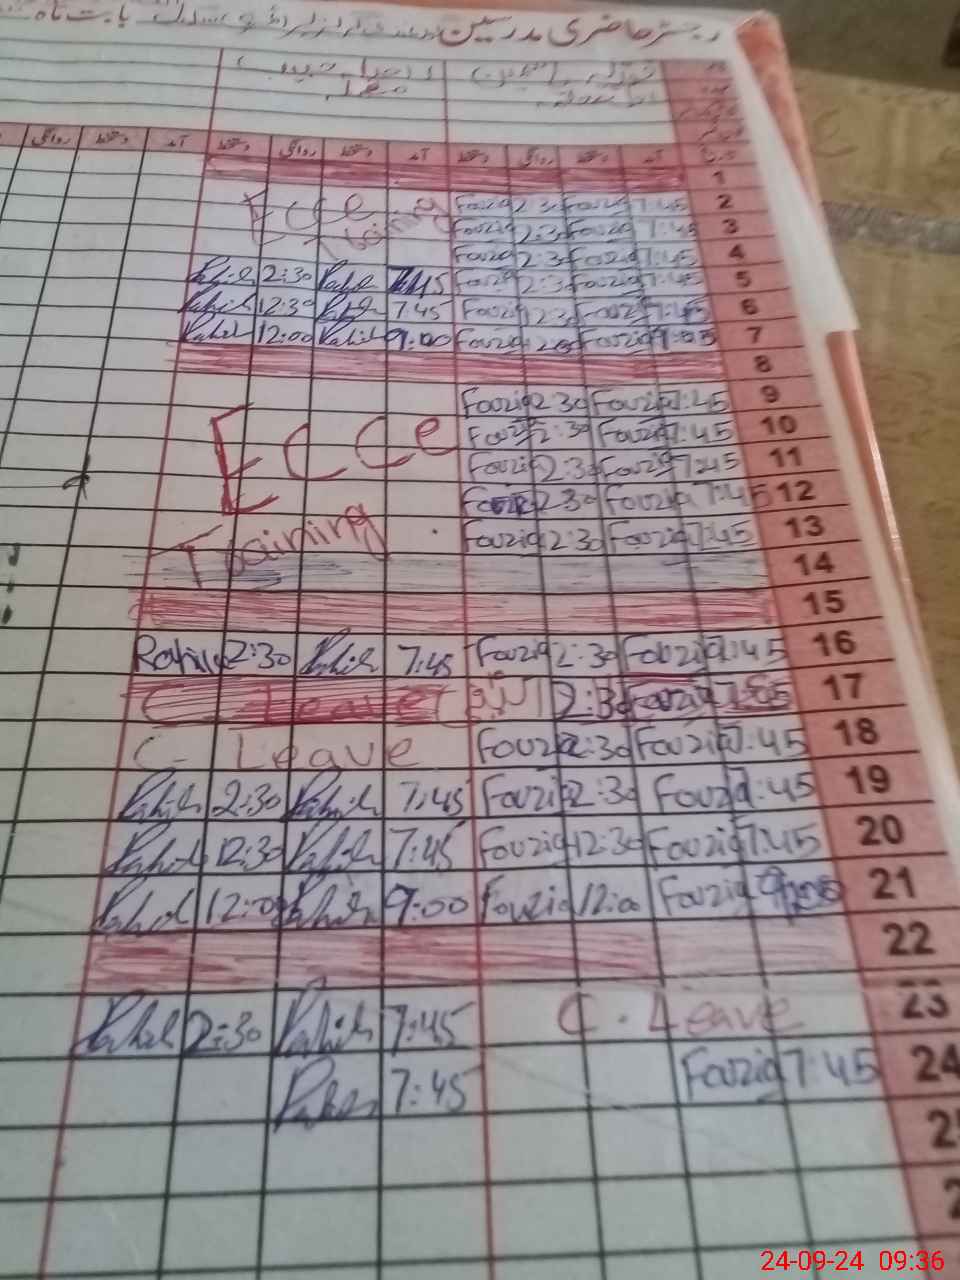 رجسٹر حاضری مدرسین
آمد دستخط روانگی دستخط آمد دستخط روانگی دستخط آمد دستخط روانگی
1
2 7:45 Fouzia 2:30 Fouzia Ecce
3 7:45 Fouzia 2:30 Fouzia Training
4 7:45 Fouzia 2:30 Fouzia
5 7:45 Fouzia 2:30 Fouzia 7:45 Rahila 2:30 Rahila
6 7:45 Fouzia 12:30 Fouzia 7:45 Rahila 12:30 Rahila
7 9:00 Fouzia 12:00 Fouzia 9:00 Rahila 12:00 Rahila
8
9 7:45 Fouzia 2:30 Fouzia
10 7:45 Fouzia 2:30 Fouzia Ecce
11 7:45 Fouzia 2:30 Fouzia
12 7:45 Fouzia 2:30 Fouzia
13 7:45 Fouzia 2:30 Fouzia Training
14
15
16 7:45 Fouzia 2:30 Fouzia 7:45 Rahila 2:30 Rahila
17 7:45 Fouzia 2:30 C Leave
18 7:45 Fouzia 2:30 Fouzia C- Leave
19 7:45 Fouzia 2:30 Fouzia 7:45 Rahila 2:30 Rahila
20 7:45 Fouzia 12:30 Fouzia 7:45 Rahila 12:30 Rahila
21 9:00 Fouzia 12:00 Fouzia 9:00 Rahila 12:00 Rahila
22
23 C. Leave 7:45 Rahila 2:30 Rahila
24 7:45 Fouzia 7:45 Rahila
24-09-24 09:36